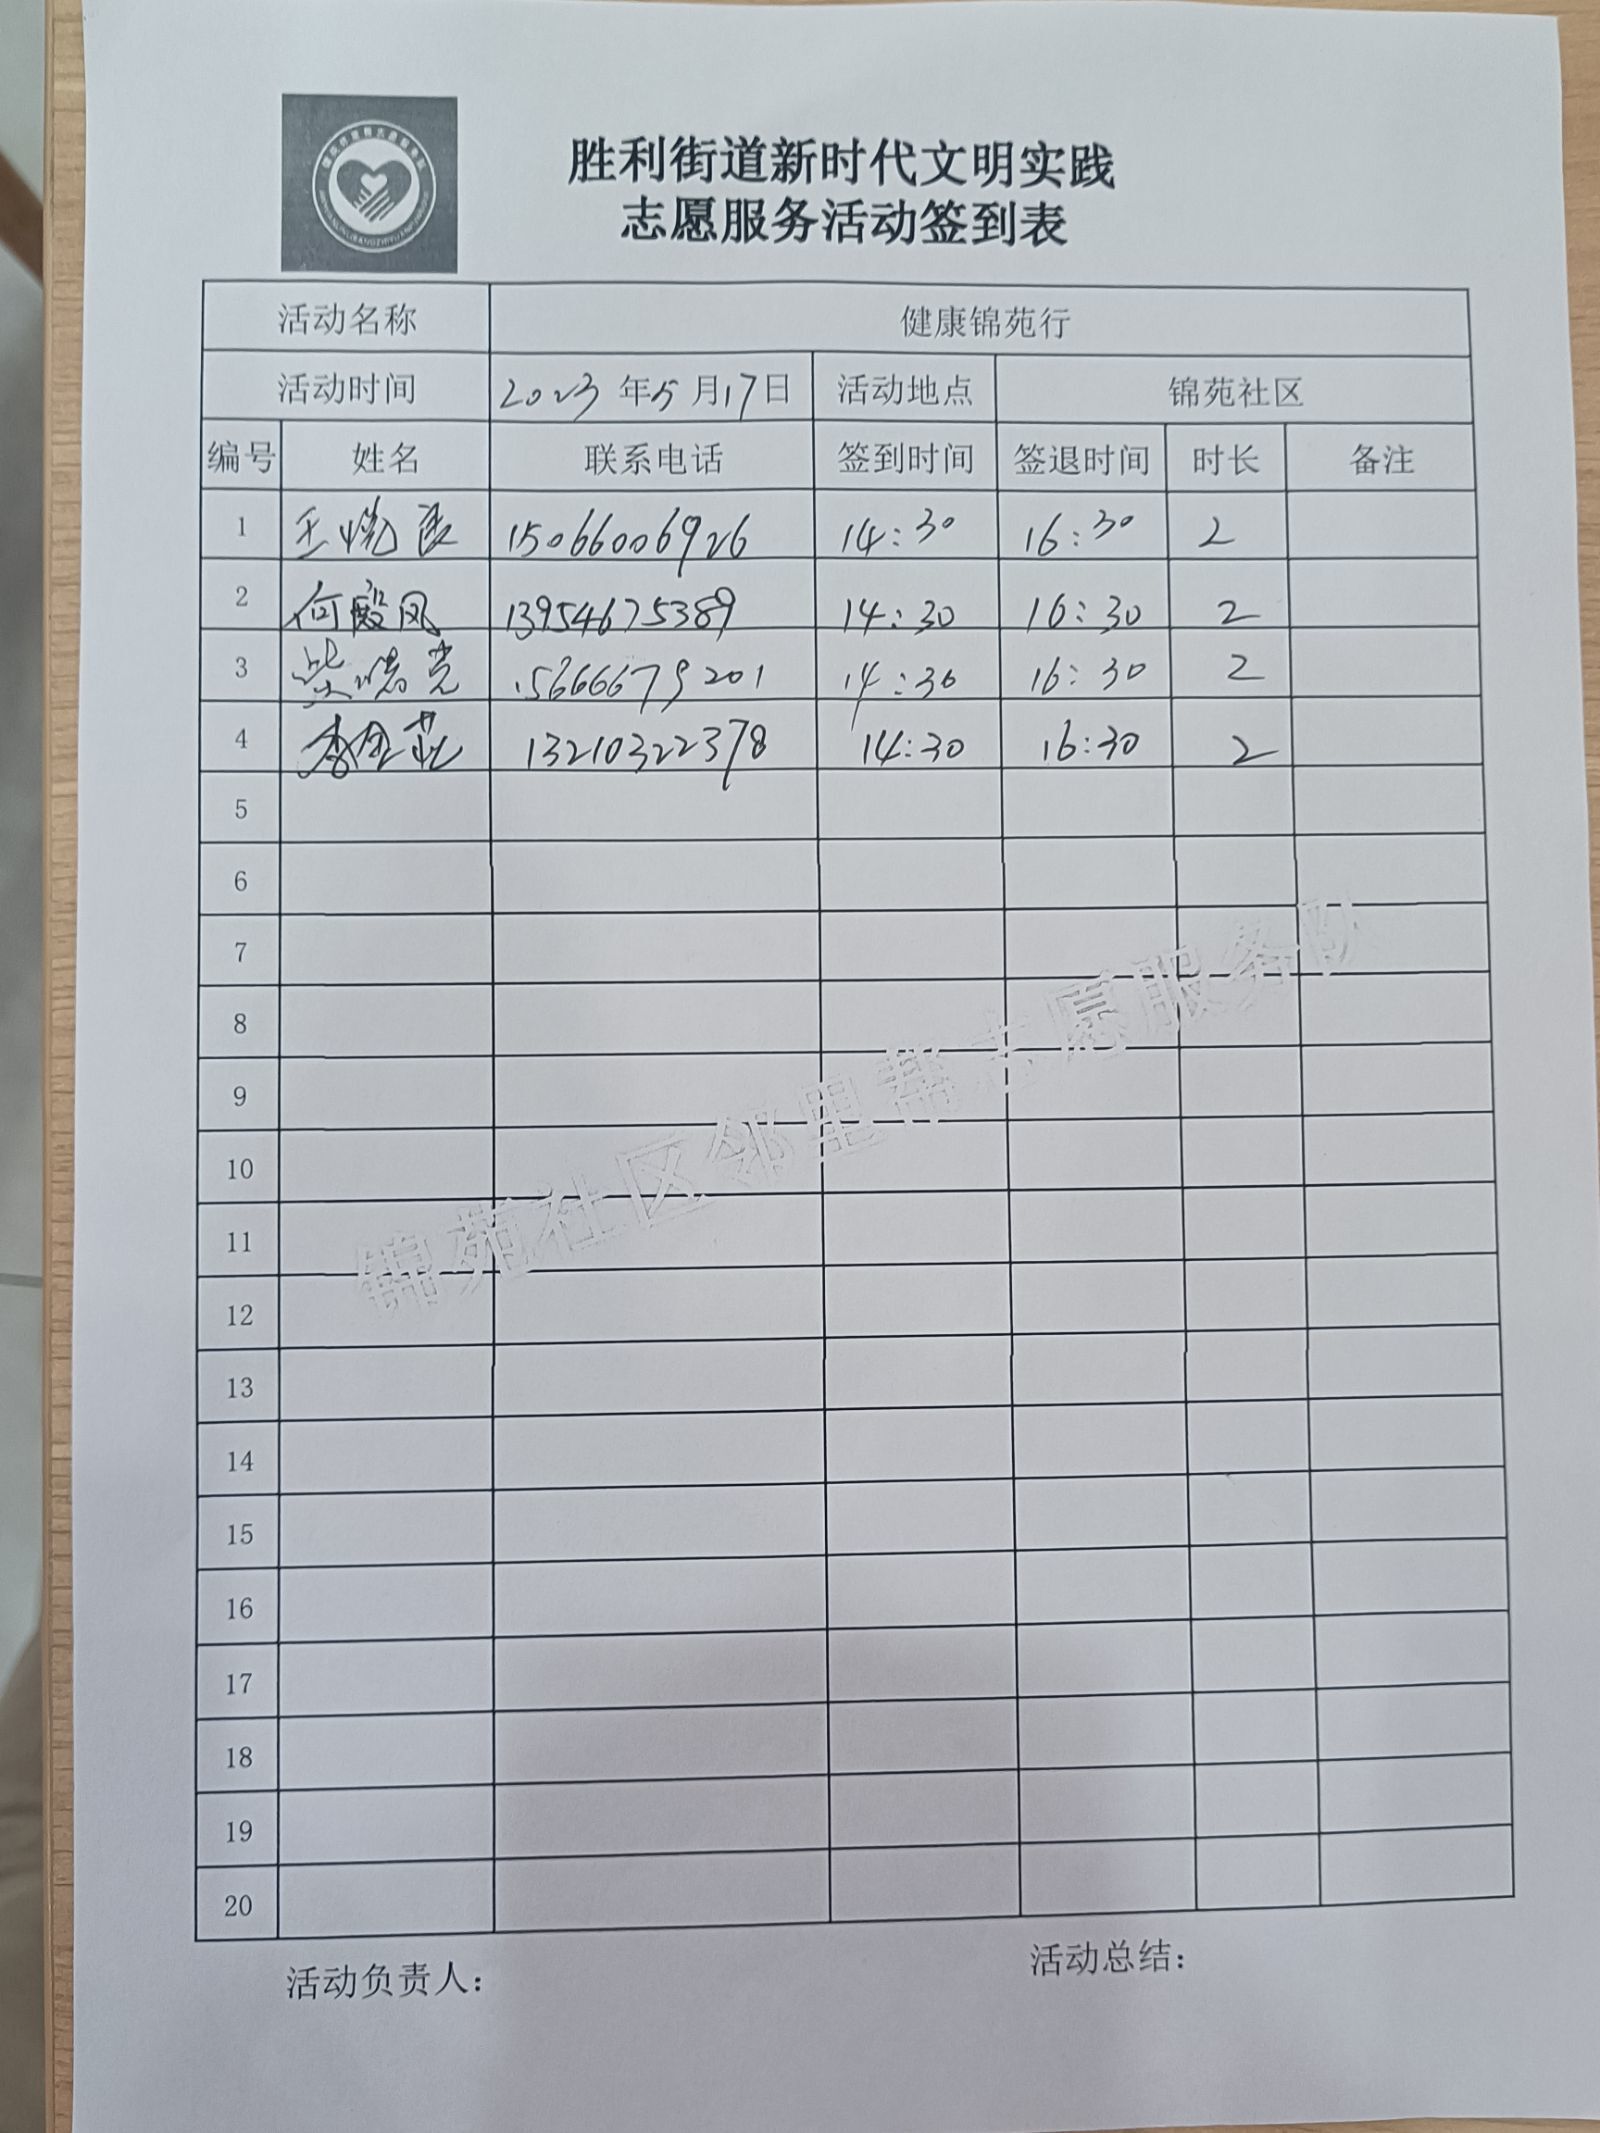 胜利街道新时代文明实践
志愿服务活动签到表
活动名称 健康锦苑行
活动时间 2023 年 5 月 17 日 活动地点 锦苑社区
编号 姓名 联系电话 签到时间 签退时间 时长 备注
1 王 15066006926 14:30 16:30 2
2 何殿凤 13954675389 14:30 16:30 2
3 柴 15666679201 14:30 16:30 2
4 李 13210322378 14:30 16:30 2
5
6
7
8
9
10
11
12
13
14
15
16
17
18
19
20
锦苑社区邻里帮志愿服务队
活动负责人: 活动总结: